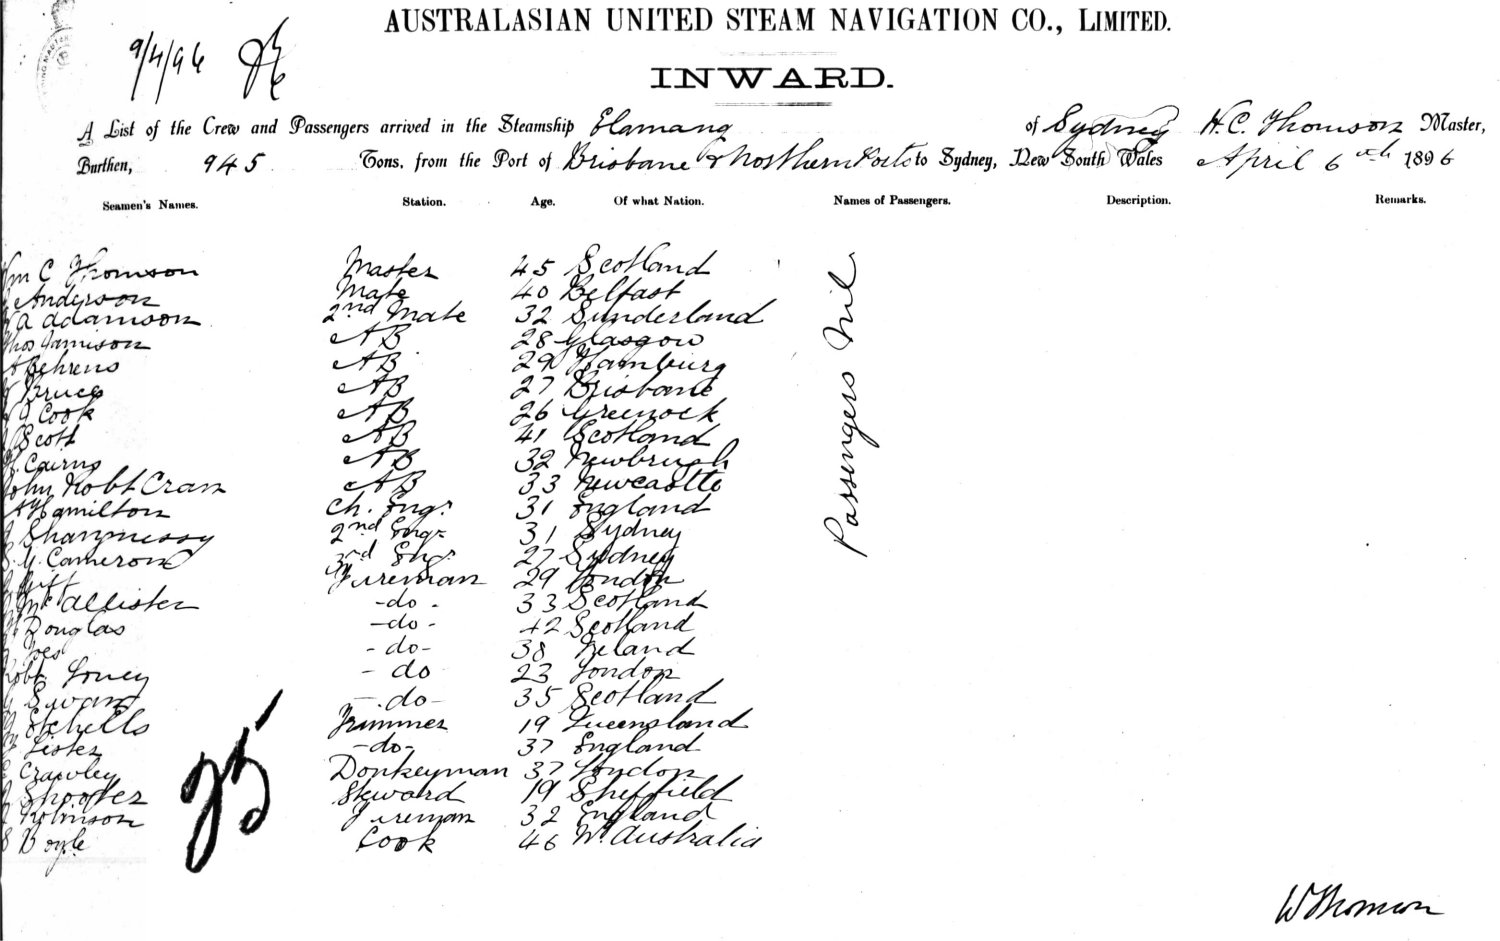 AUSTRALASIAN UNITED STEAM NAVIGATION CO., LIMITED.
9/4/96
INWARD.
A List of the Crew and Passengers arrived in the Steamship Elamang of Sydney H.C. Thomson Master,
Burthen, 945 Tons, from the Port of Brisbane & Northern Ports to Sydney, New South Wales April 6th 1896
Seamen's Names. Station. Age. Of what Nation. Names of Passengers. Description. Remarks.
Wm C Thomson Master 45 Scotland
Anderson Mate 40 Belfast
A Adamson 2nd Mate 32 Sunderland
Thos Jamison AB 28 Glasgow
A Behrens AB 29 Hamburg
Bruce AB 27 Brisbane
Cook AB 26 Greenock
Scott AB 41 Scotland
Cairns AB 32 Newbrugh
John Robt Cram AB 33 Newcastle
A Hamilton Ch. Engr 31 England
Shannessy 2nd Engr 31 Sydney
Cameron 3rd Engr 27 Sydney
Fireman 29 London
McAllister -do- 33 Scotland
Douglas -do- 42 Scotland
-do- 38 Ireland
Robt. Loney -do 23 London
Swan -do- 35 Scotland
Trimmer 19 Queensland
Lister -do- 37 England
Crawley Donkeyman 37 London
Shooter Steward 19 Sheffield
Robinson Fireman 32 England
S Boyle Cook 46 W. Australia
Passengers Nil.
25
W Thomson